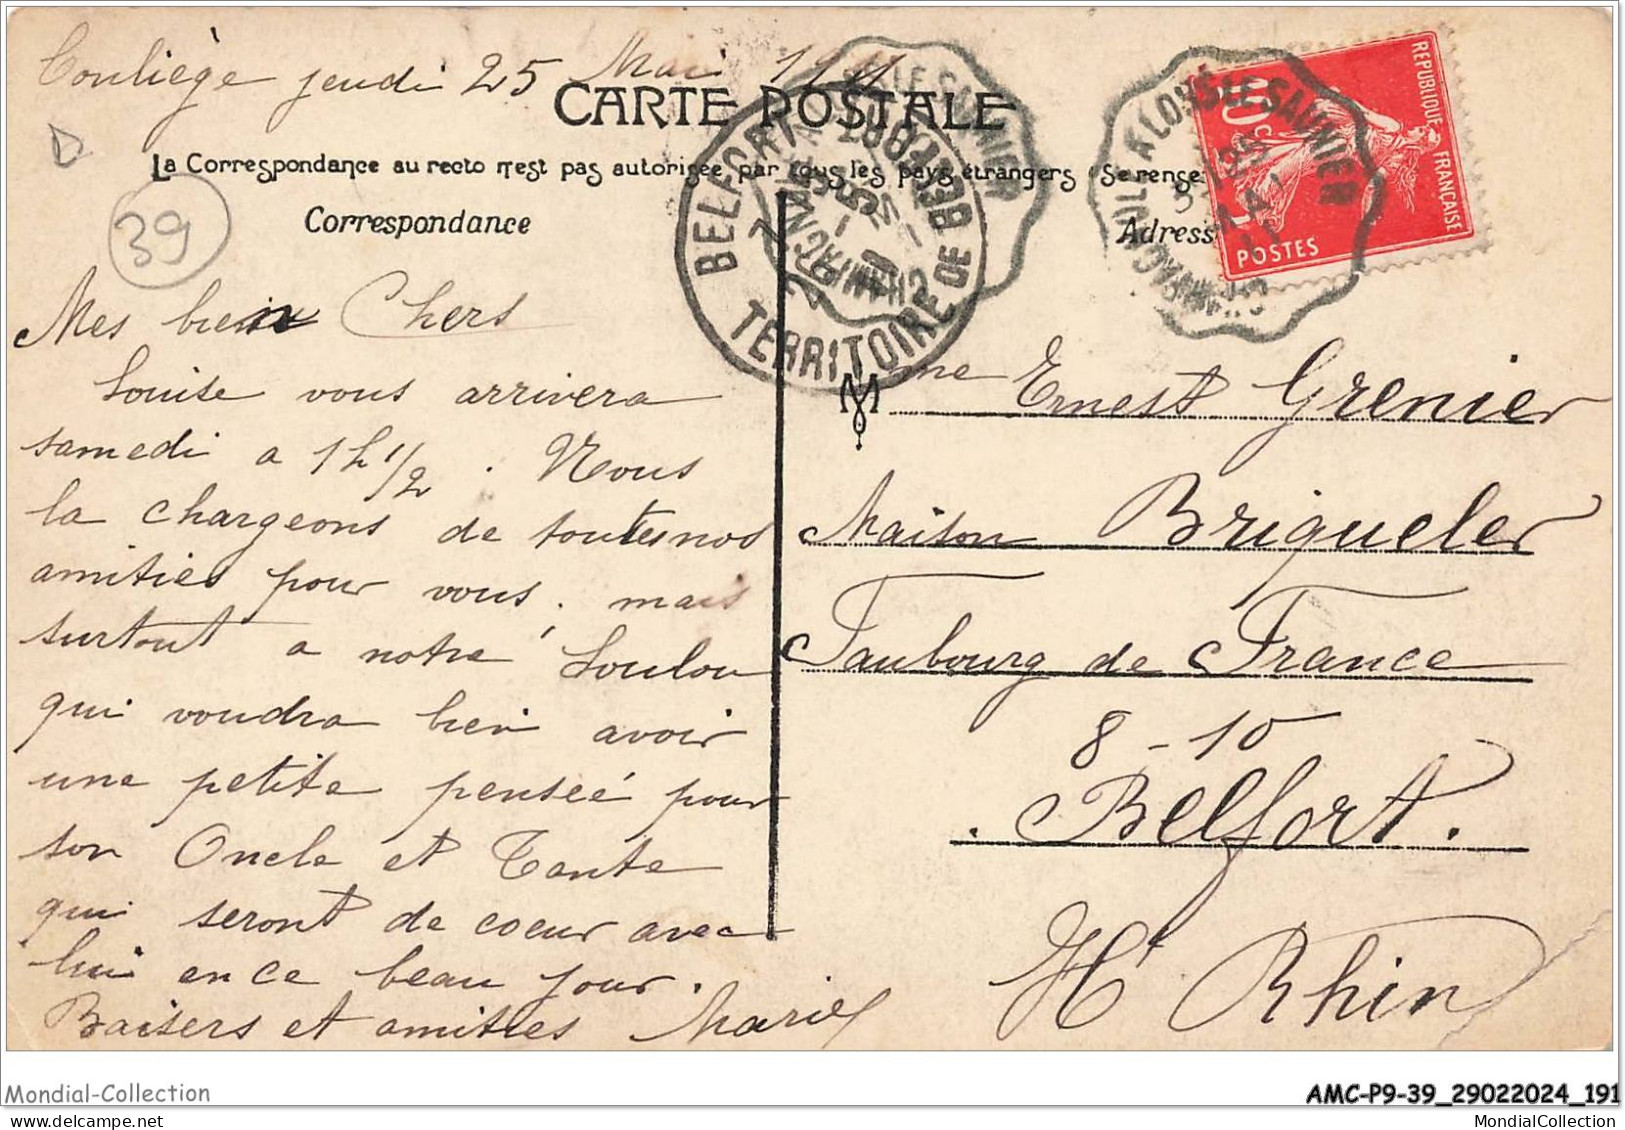 Conliège jeudi 25 Mai 1911
CARTE POSTALE
La Correspondance au recto n'est pas autorisée par tous les pays étrangers (Se renge
39
Correspondance
Adress
REPUBLIQUE FRANÇAISE
10 c
POSTES
BELFORT
TERRITOIRE DE BELFORT
CHAMPAGNOLE A LONS-LE-SAUNIER
Mes bien Chers
Louise vous arrivera
samedi a 1h 1/2 . Nous
la chargeons de toutes nos
amitiés pour vous, mais
surtout a notre Loulou
qui voudra bien avoir
une petite pensée pour
son Oncle et Tante
qui seront de coeur avec
lui en ce beau jour.
Baisers et amitiés Marie
Mme Ernest Grenier
Maison Briqueler
Faubourg de France
8-10
. Belfort .
Ht Rhin
Mondial-Collection
AMC-P9-39_29022024_191
MondialCollection